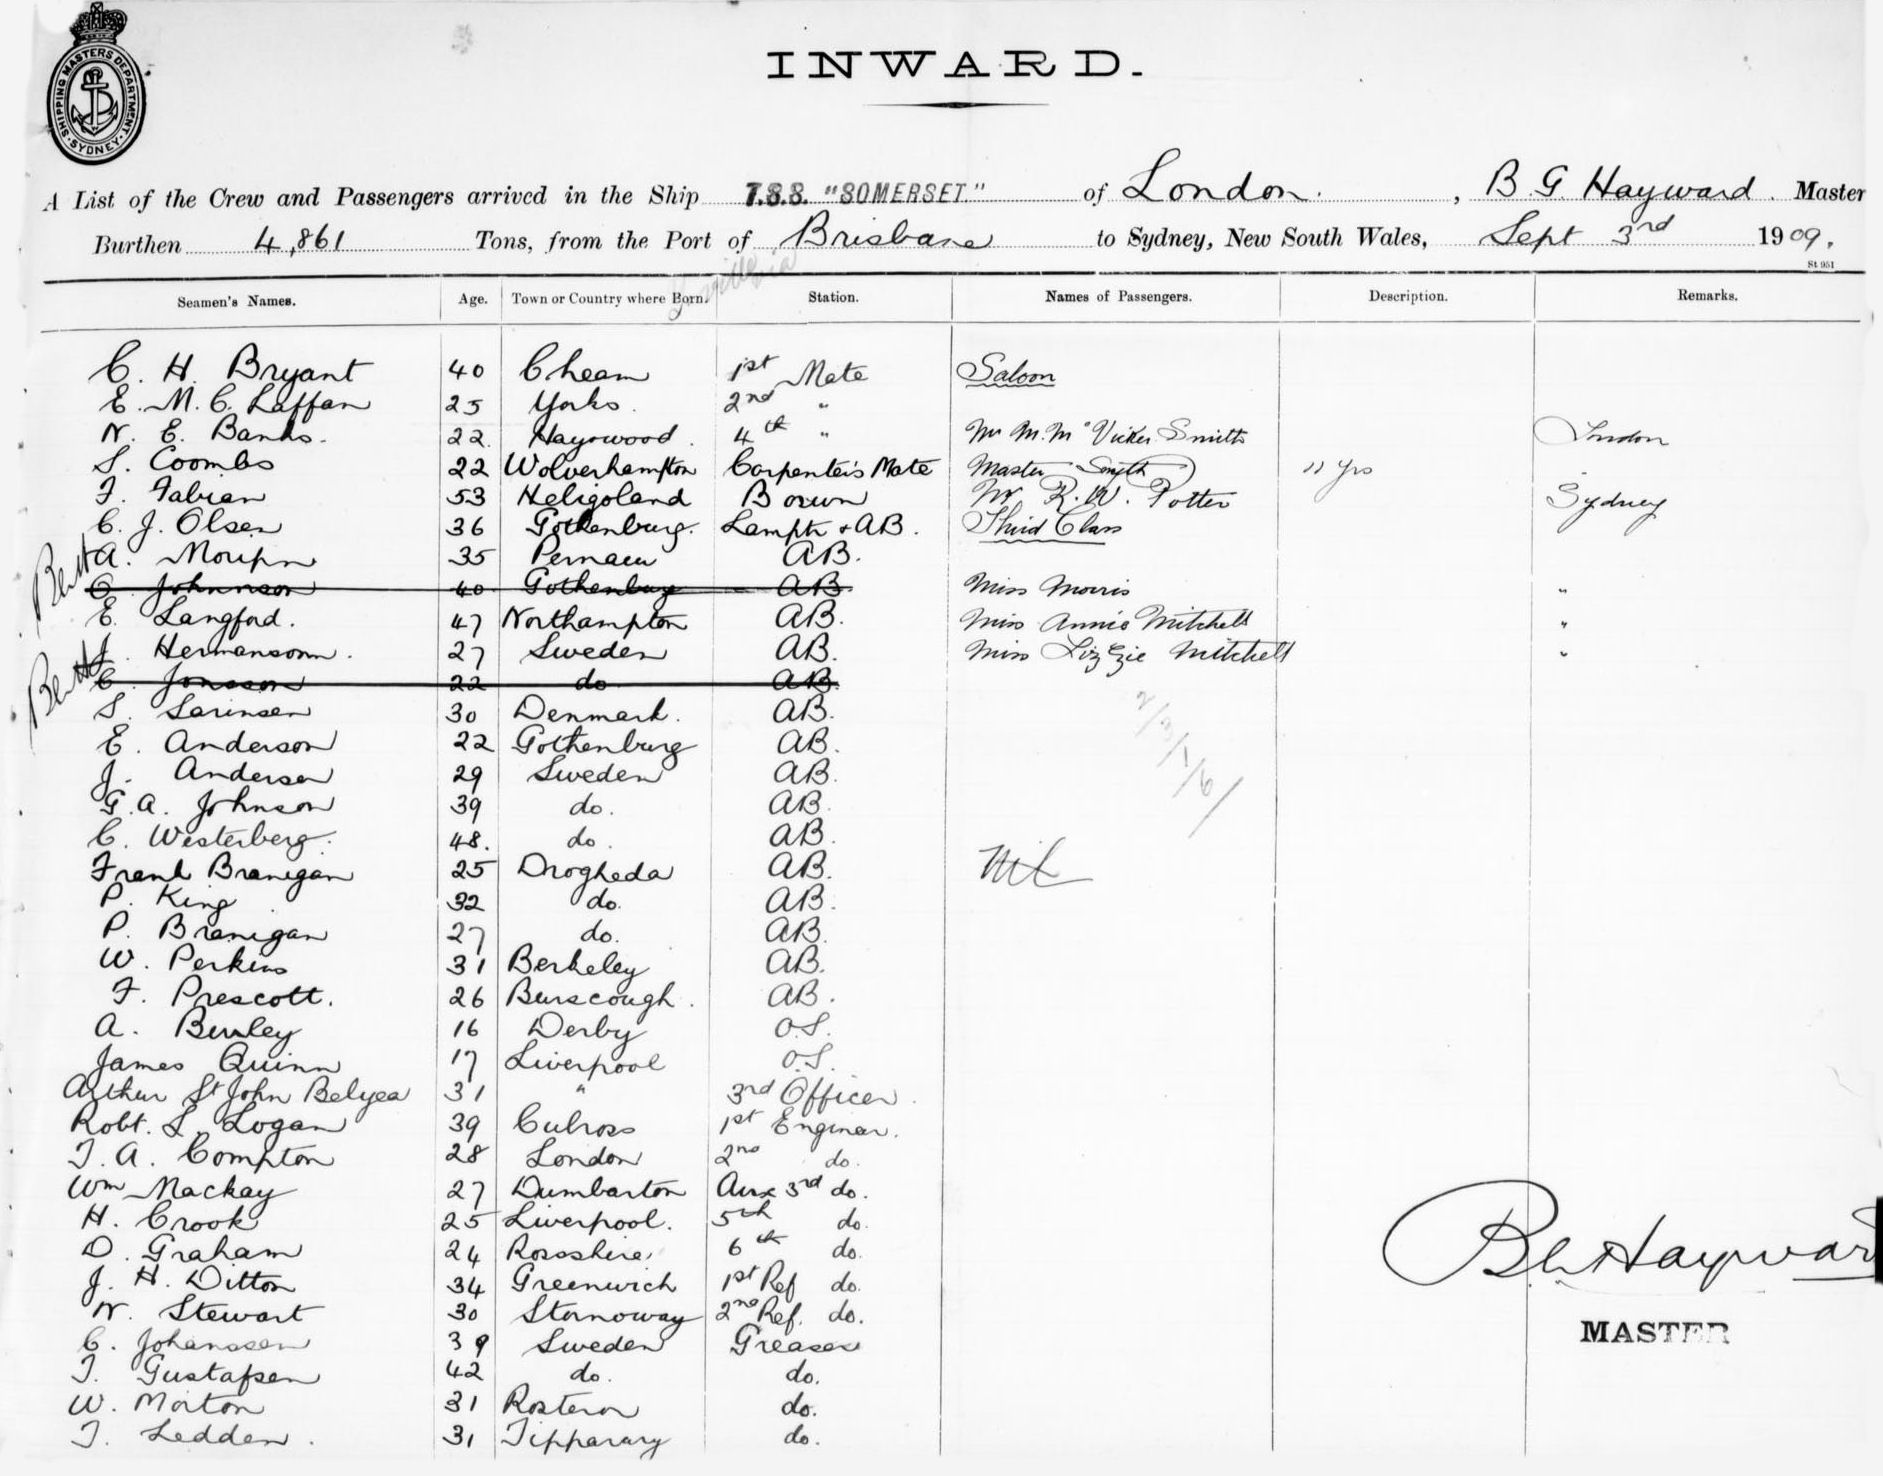 SHIPPING MASTERS DEPARTMENT. SYDNEY
INWARD.
A List of the Crew and Passengers arrived in the Ship T.S.S. "SOMERSET" of London. , B G. Hayward. Master
Burthen 4,861 Tons, from the Port of Brisbane to Sydney, New South Wales, Sept 3rd 1909.
St 951
Seamen's Names. Age. Town or Country where Born. Station. Names of Passengers. Description. Remarks.
C. H. Bryant 40 Cheam 1st Mate Saloon
E. M. C. Laffan 25 Yorks. 2nd "
N. E. Banks. 22 Haywood. 4th " London
S. Coombs 22 Wolverhampton Carpenter's Mate Master Smyth 11 yrs
F. Fabian 53 Heligoland Bosun Mr R. W. Potter Sydney
C. J. Olsen 36 Gothenburg. Lamptr + AB. Third Class
A. 35 Pernau AB.
C. Johnnson 40 Gothenburg AB Miss Morris "
E. Langford. 47 Northampton AB. Miss Annie Mitchell "
Hermansonn. 27 Sweden AB. Miss Lizzie Mitchell "
C. Jonsson 22 do AB.
S. Sorinsen 30 Denmark. AB.
2/3/1/6/
E. Anderson 22 Gothenburg AB.
J. Anderson 29 Sweden AB.
G. A. Johnson 39 do. AB.
C. Westerberg. 48. do. AB.
Frank Branigan 25 Drogheda AB. Nil
P. King 32 do. AB.
P. Branigan 27 do. AB.
W. Perkins 31 Berkeley AB.
F. Prescott. 26 Burscough. AB.
A. Burley 16 Derby O.S.
James Quinn 17 Liverpool O.S.
Arthur St John Belyea 31 " 3rd Officer.
Robt. L. Logan 39 Culross 1st Engineer.
T. A. Compton 28 London 2nd do.
Wm Mackay 27 Dumbarton Aux 3rd do.
H. Crook 25 Liverpool. 5th do.
D. Graham 24 Rossshire. 6th do.
J. H. Ditton 34 Greenwich 1st Ref do.
N. Stewart 30 Stornoway 2nd Ref. do.
C. Johanssen 39 Sweden Greaser
T. Gustafsen 42 do. do.
W. Morton 31 do.
T. Ledden. 31 Tipparary do.
Hayward
MASTER